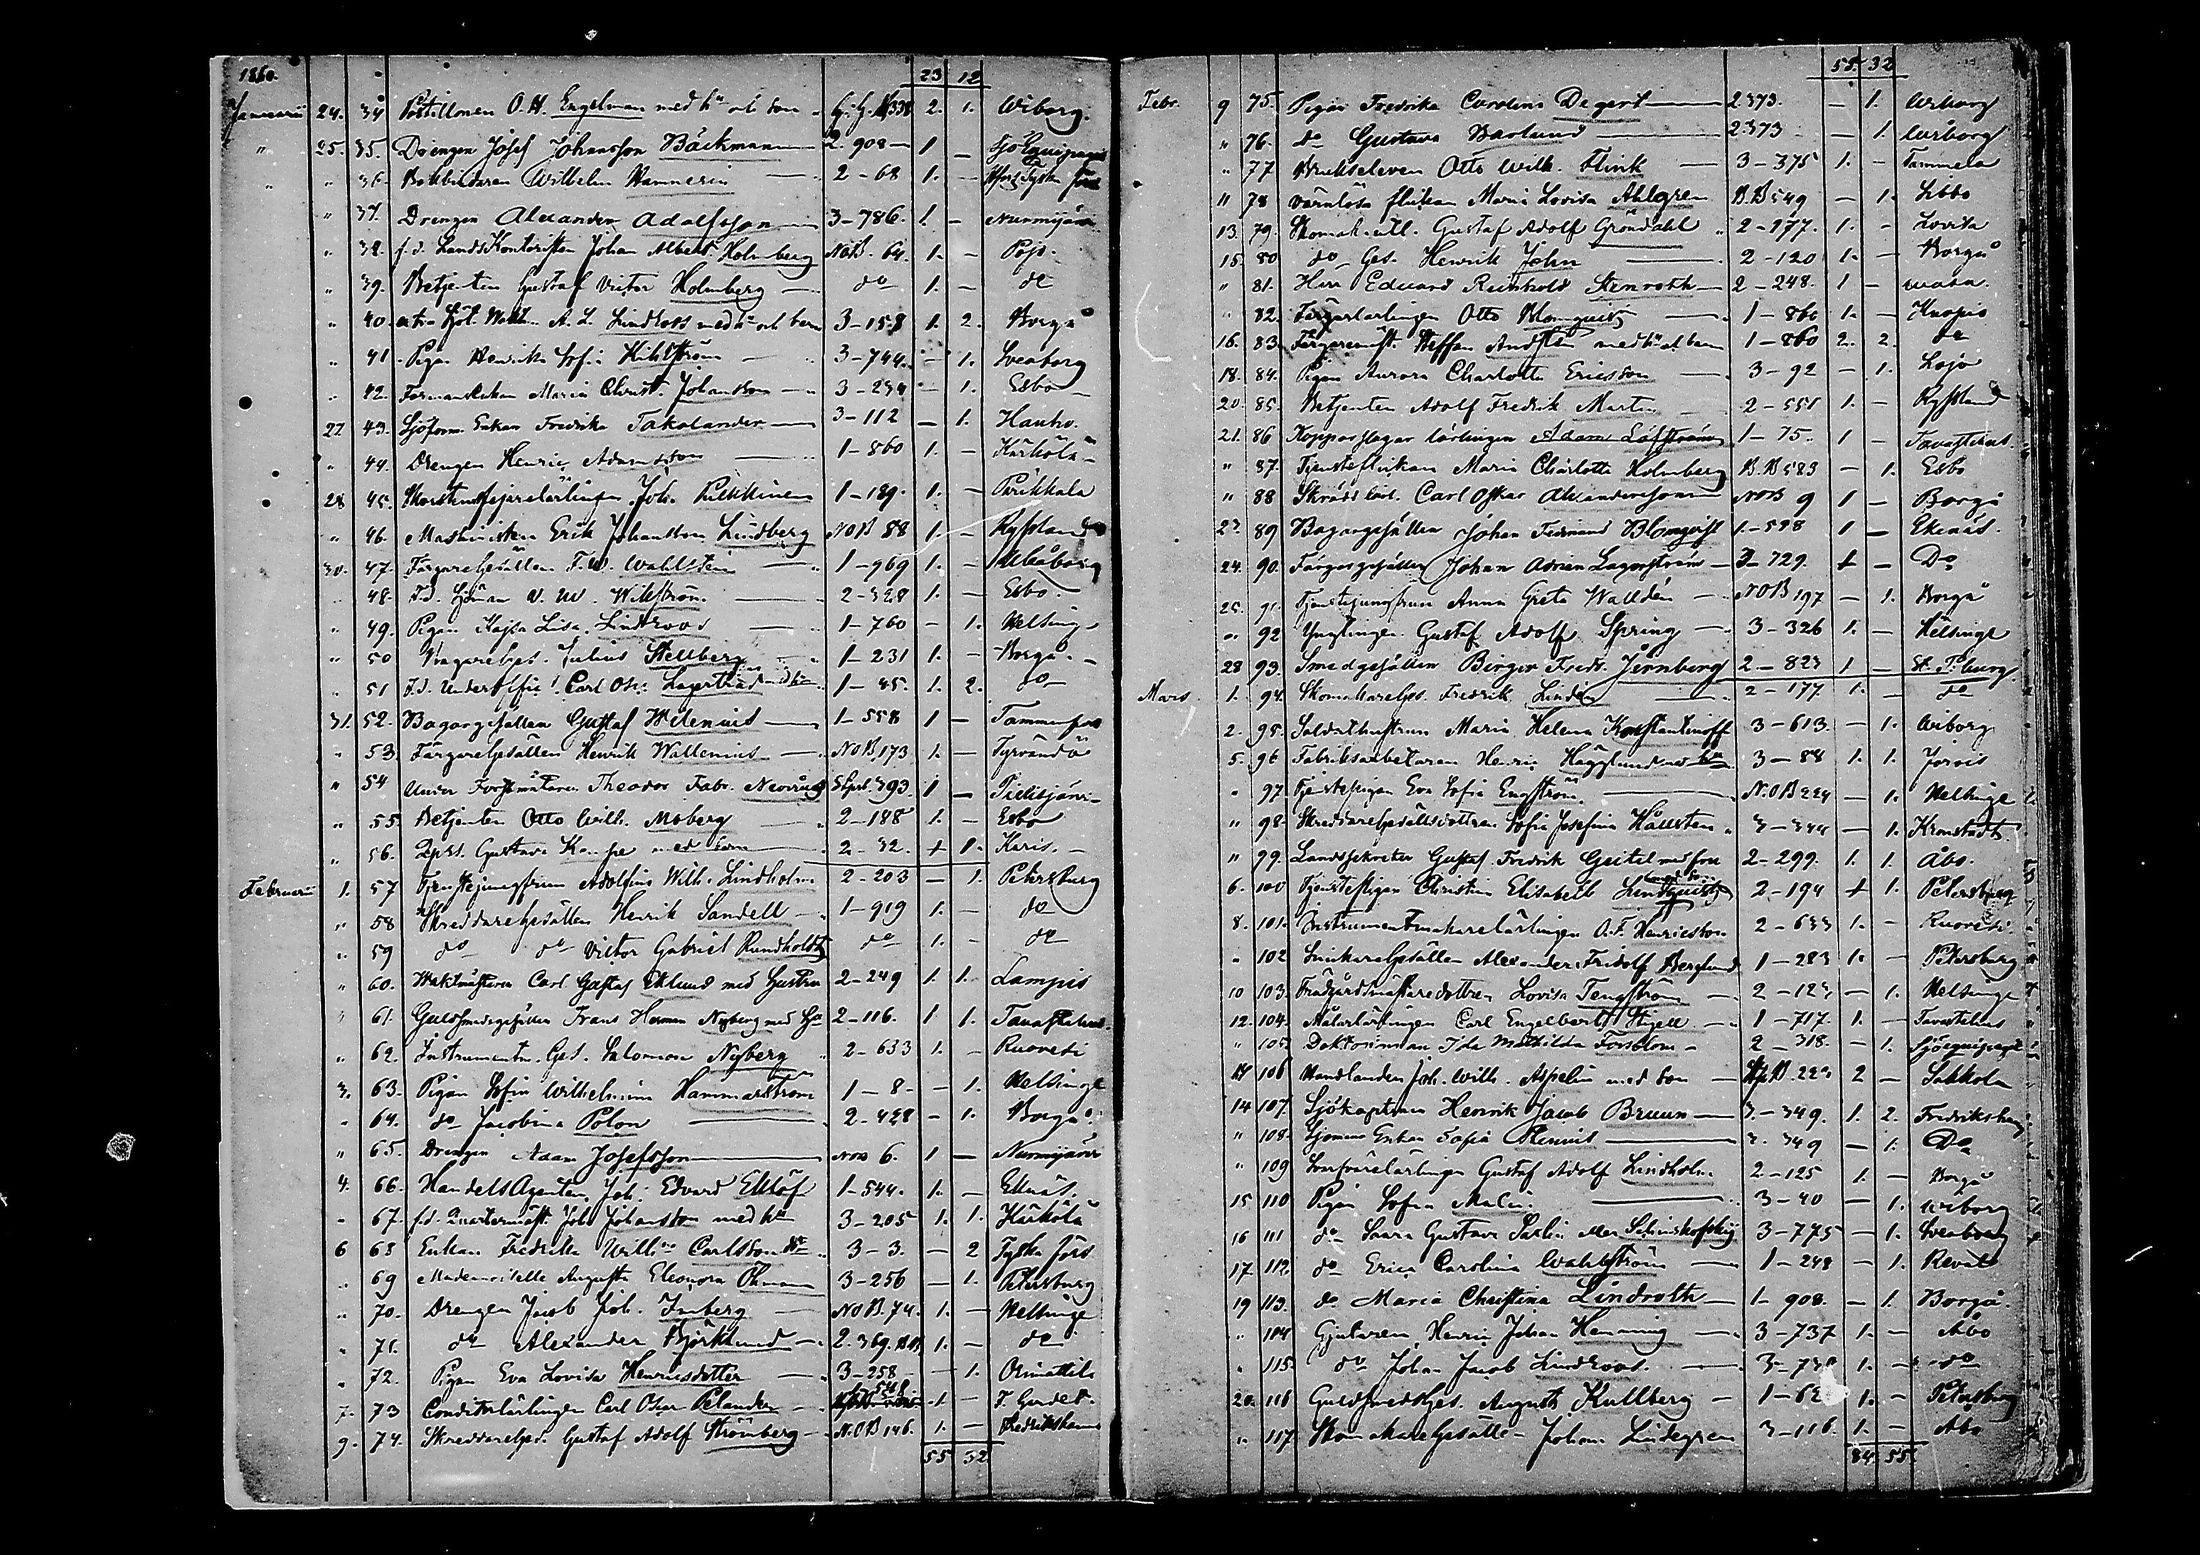 1860. 23 12
Januarii 24. 34 Postillonen O. H. Engelman med h. och son 338 2. 1. Wiborg.
" 25. 35. Drengen Josef Johansson Bäckman 2. 908 1 —
" 36. Bokbindaren Wilhelm Hamnerin 2-68 1. —
" 37. Drengen Alexander Adolfsson 3-786. 1 — Nurmijärvi
" 38. f.d. LandsKontoristen Johan Albert Holmberg NOB. 64. 1. — Pojo.
" 39. Betjenten Gustaf Victor Holmberg do 1. — do
" 40. A. L. Lindroos med h. och barn 3-158 1. 2. Borgå
" 41. Pigan Henrika Sofia Kihlström 3-744. — 1. Sveaborg
" 42. Formansenkan Maria Christ. Johansson 3-234 — 1. Esbo
27 43. Enkan Fredrika Takolander 3-112 — 1. Hauho.
" 44. Drengen Henric Adamsson 1-860 1. — Kärkölä
28 45. Skorstensfejarelärlingen Joh. Pulkkinen 1-189. 1. — Parikkala
" 46. Maskinisten Erik Johansson Lindberg NOB 88 1. — Ryssland
30. 47. Färgaregesällen F. W. Wahlsten 1-969 1. — Uleåborg
" 48. f.d. Sjöman V. W. Wikström 2-328 1. — Esbo.
" 49. Pigan Kajsa Lisa Lindroos 1-760 — 1. Helsinge
" 50 Julius Stellberg 1-231 1. — Borgå.
" 51 f.d. Underoffic. Carl Ot. 1-85. 1. 2. do
31. 52. Bagargesällen Gustaf Helenius 1-558 1 — Tammerfors
" 53. Färgaregesällen Henrik Wallenius NOB, 173 1. — Tyrvändö
" 54 Under Forstmätaren Theodor Fabr. 393. 1 — Pielisjärvi
" 55. Betjenten Otto Wilh. Moberg 2-188 1. — Esbo
" 56. Gustava Kempe med son 2-32. 1 1. Karis.
Februarii 1. 57 Tjenstejungfrun Adolfina Wilh. Lindholm 2-203 — 1. Petersburg
" 58 Skreddaregesällen Henrik Sandell 1-919 1. — do
" 59 do do Victor Gabriel Rundholdt do 1. — do
" 60. Waktmästaren Carl Gustaf Eklund med Hustru 2-249 1. 1. Lampis
" 61. Guldsmedsgesällen Frans Herman Nyberg med Hu 2-116. 1 1. Tavastehus.
" 62. Instrumentm. Ges. Salomon Nyberg 2-633 1. — Ruovesi
3. 63. Pigan Sofia Wilhelmina Hammarström 1-8- — 1. Helsinge
" 64. do Jacobina Polon 2-428 — 1. Borgå.
" 65. Drengen Adam Josefsson NOB 6. 1 — Nurmijärvi
4. 66. HandelsAgenten Joh. Edvard Eklöf 1-544. 1. — Ekenäs.
" 67. f.d. Quartermäst. Joh. Johansson med h. 3-205 1. 1. Kärkölä
6 68 Enkan Fredrika Wilh. Carlsson 3-3. — 2 Tyska förs.
" 69 Mademoiselle Augusta Eleonora Öhman 3-256 — 1. Petersburg
" 70. Drengen Jacob Joh. Imberg NOB. 74. 1. — Helsinge
" 71. do Alexander Björklund 2. 369. BB 1. — do
" 72. Pigan Eva Lovisa Henricsdotter 3-258 — 1. Orimattila
7. 73 Conditorlärlingen Carl Oskar Pelander 548 1 — F. Gardet.
9. 74. Skreddareges. Gustaf Adolf Strömberg NOB 146. 1. — Fredrikshamn
55 32
55. 32
Febr. 9 75. Pigan Fredrika Carolina Degert 2 373. — 1. Wiborg
" 76. do Gustava Barlund 2 373 — 1. Wiborg
" 77 Brukseleven Otto Wilh. Flink 3-375 1. — Tammela
" 78 värnlösa flickan Maria Lovisa Ahlgren B.B 549 — 1. Sibbo
13 79. Skomak. Gustaf Adolf Gröndahl 2-177. 1. — Lovisa
15. 80 do Ges. Henrik John 2-120 1. — Borgå
" 81. Herr Eduard Reinhold Stenroth 2-248. 1 — Wasa.
" 82. Färgarlärlingen Otto Blomquist 1-860 1. — Kuopio
16. 83. Färgaremäst. Steffan med h. o. barn 1-860 2. 2. do
18. 84. Pigan Aurora Charlotta Ericsson 3-92 — 1. Lojo
20. 85. Betjenten Adolf Fredrik Martin 2-551 1. — Ryssland
21. 86 Kopparslagar lärlingen Adam Löfström 1-75. 1 — Tavastehus.
" 87. Tjensteflickan Maria Charlotta Holmberg B.B 583 — 1. Esbo
" 88 Skrädd. lärl. Carl Oskar Alexandersson NOB 9 1 — Borgå
23. 89 Bagargesällen Johan Ferdinand Blomqvist 1-528 1 — Ekenäs.
24. 90. Färgargesällen Johan Adrian Lagerström 3-729. 1 — Do
25. 91. Tjenstejungfrun Anna Greta Walldén NOB 197 — 1. Borgå
" 92 Ynglingen Gustaf Adolf Spring 3-326 1. — Helsinge
28 93. Smedgesällen Birger Fredr. Jernberg 2-823 1 — St. P.burg
Mars 1. 94. Skomakareges. Fredrik Lindén 2-177 1. — do
2. 95. Soldathustrun Maria Helena Konstantinoff 3-613. — 1. Wiborg
5. 96 Fabriksarbetaren Henric Hägglund med h. 3-88 1. 1. Jorois
" 97. Tjenstepigan Eva Sofia Engström NOB 224 — 1. Helsinge
" 98. Skreddaregesällsdottren Sofia Josefina Hallsten 3-344 — 1. Kronstadt
" 99. Landssekreter Gustaf Fredrik Geitel med fru 2-299. 1. 1. Åbo.
6. 100 Tjenstepigan Christina Elisabeth Lindquist 2-194 1 1. Petersburg
8. 101. Instrumentmakarelärlingen A. F. Henricsson 2-633 1. — Ruovesi
" 102 Snickaregesällen Alexander Fridolf Berglund 1-283 1. — Petersburg
10 103. Trädgårdsmästaredottren Lovisa Tengström 2-123 — 1. Helsinge
12. 104. Målarlärlingen Carl Engelbert 1-717. 1. — Tavastehus
" 105. Ida Mathilda Forsblom 2-318. — 1. Sjöequipaget
" 106 Handlanden Joh. Wilh. Aspelin med son 2 — Sakkola
14 107. Sjökapitain Henrik Jacob Bruun 3-349. 1. 2. Fredrikshamn
" 108. Sjömans Enkan Sofia 3. 349 — 1. Do
" 109 Gustaf Adolf Lindholm 2-125 1. — Borgå
15 110 Pigan Sofia Malin 3-40 — 1. Wiborg
16 111 do Saara Gustava 3-775 — 1. Sveaborg
17. 112. do Erica Carolina Wahlström 1-248 — 1. Reval
19 113. do Maria Christina Lindroth 1-908. — 1. Borgå.
" 114 Gjutaren Henric Johan Henning 3-737 1. — Åbo
" 115. do Johan Jacob Lindroos. 1. — do
20. 116 Guldsmedsges. August Kullberg 1. — Petersburg
" 117. Skomakaregesälle Johan Lindegren 3-116. 1. — Åbo
84 55.